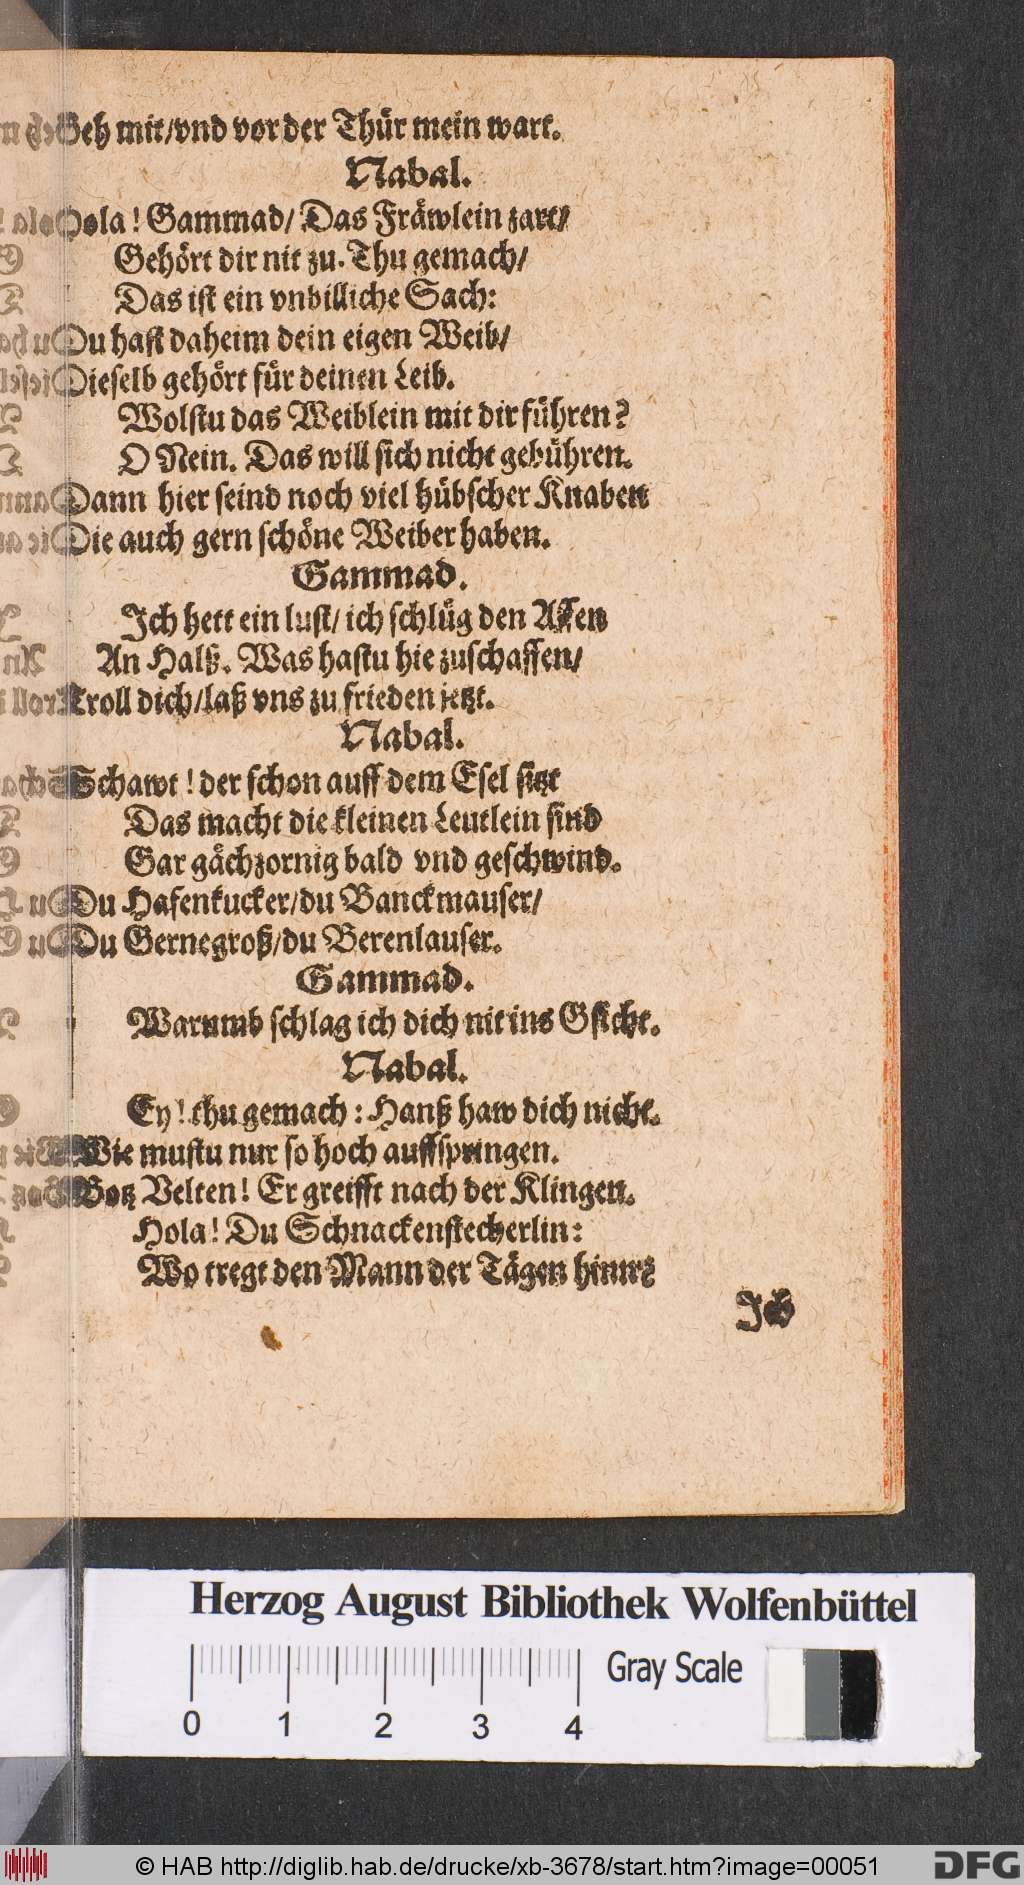 Geh mit/vnd vor der Thür mein wart.
Nabal.
Hola! Gammad/ Das Fräwlein zart/
Gehört dir nit zu. Thu gemach/
Das ist ein vnbilliche Sach:
Du hast daheim dein eigen Weib/
Dieselb gehört für deinen Leib.
Wolstu das Weiblein mit dir führen?
O Nein. Das will sich nicht gebühren.
Dann hier seind noch viel hübscher Knaben
Die auch gern schöne Weiber haben.
Gammad.
Ich hett ein lust/ ich schlüg den Affen
An Halß. Was hastu hie zuschaffen/
Troll dich/laß vns zu frieden jetzt.
Nabal.
Schawt! der schon auff dem Esel sitzt
Das macht die kleinen Leutlein sind
Gar gächzornig bald vnd geschwind.
Du Hafenkucker/du Banckmauser/
Du Gernegroß/du Berenlauser.
Gammad.
Warumb schlag ich dich nit ins Gsicht.
Nabal.
Ey! thu gemach: Hanß haw dich nicht.
Wie mustu nur so hoch auffspringen.
Botz Velten! Er greifft nach der Klingen.
Hola! Du Schnackenstecherlin:
Wo tregt den Mann der Tägen hinn?
Ich
Herzog August Bibliothek Wolfenbüttel
0 1 2 3 4 Gray Scale
© HAB http://diglib.hab.de/drucke/xb-3678/start.htm?image=00051 DFG